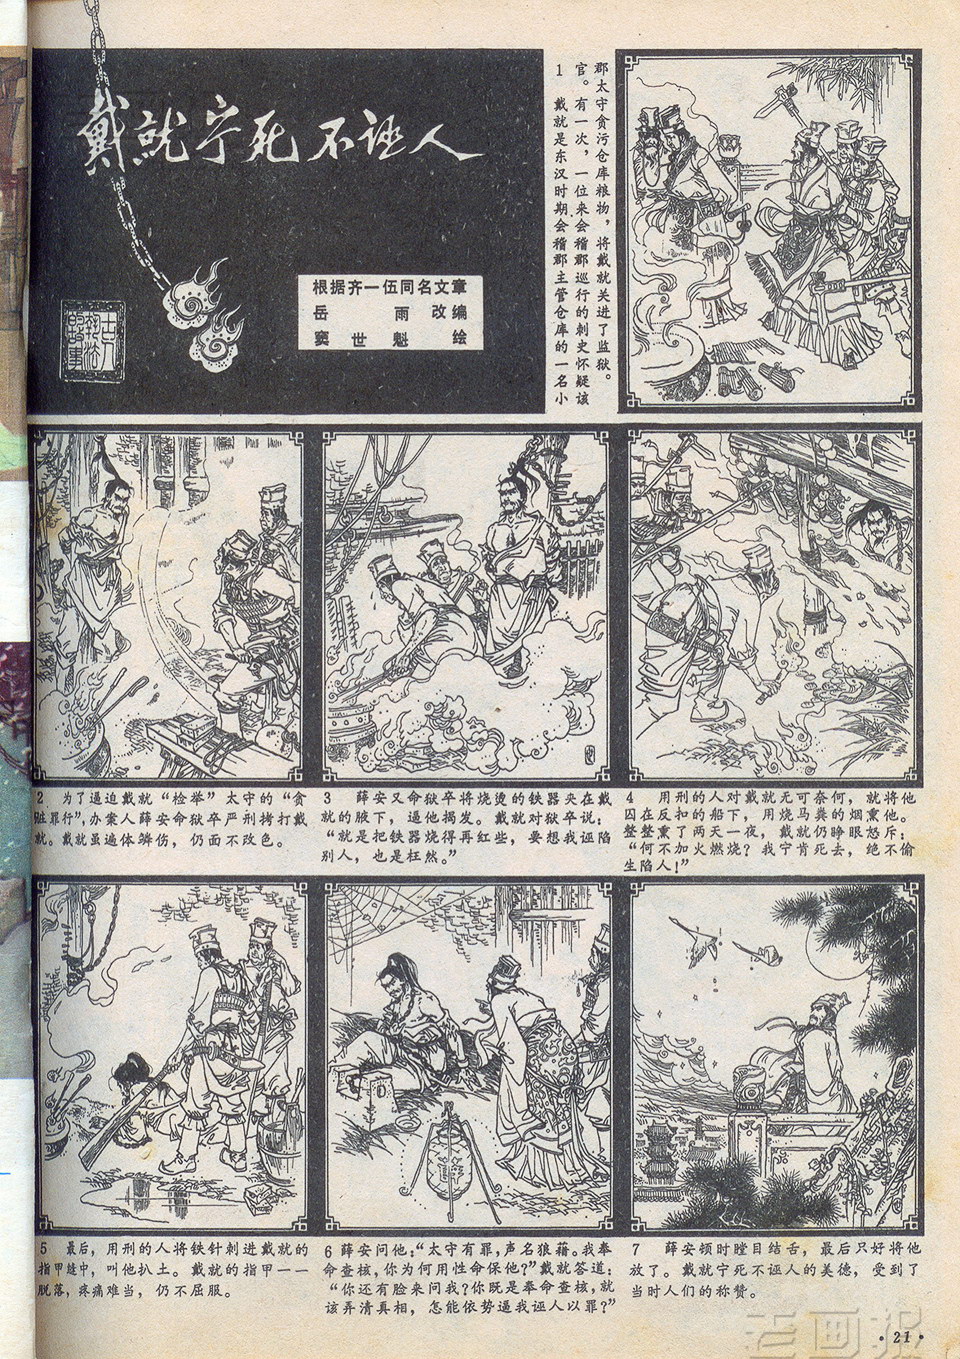 戴就宁死不诬人
根据齐一伍同名文章
岳雨改编
窦世魁绘
1 戴就是东汉时期会稽郡主管仓库的一名小
官。有一次，一位来会稽郡巡行的刺史怀疑该
郡太守贪污仓库粮物，将戴就关进了监狱。
2 为了逼迫戴就“检举”太守的“贪
赃罪行”，办案人薛安命狱卒严刑拷打戴
就。戴就虽遍体鳞伤，仍面不改色。
3 薛安又命狱卒将烧烫的铁器夹在戴
就的腋下，逼他揭发。戴就对狱卒说：
“就是把铁器烧得再红些，要想我诬陷
别人，也是枉然。”
4 用刑的人对戴就无可奈何，就将他
囚在反扣的船下，用烧马粪的烟熏他。
整整熏了两天一夜，戴就仍睁眼怒斥：
“何不加火燃烧？我宁肯死去，绝不偷
生陷人！”
5 最后，用刑的人将铁针刺进戴就的
指甲缝中，叫他扒土。戴就的指甲一一
脱落，疼痛难当，仍不屈服。
6 薛安问他：“太守有罪，声名狼藉。我奉
命查核，你为何用性命保他？”戴就答道：
“你还有脸来问我？你既是奉命查核，就
该弄清真相，怎能依势逼我诬人以罪？”
7 薛安顿时瞠目结舌，最后只好将他
放了。戴就宁死不诬人的美德，受到了
当时人们的称赞。
老画报
·21·